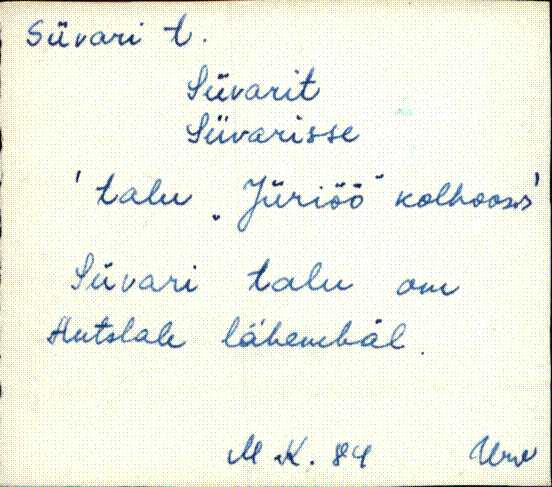 Süvari t.
Süvarit
Süvarisse
'talu „Jüriöö" kolhoosis'
Süvari talu om
Hutslale lähembäl.
M.K. 84 Urv